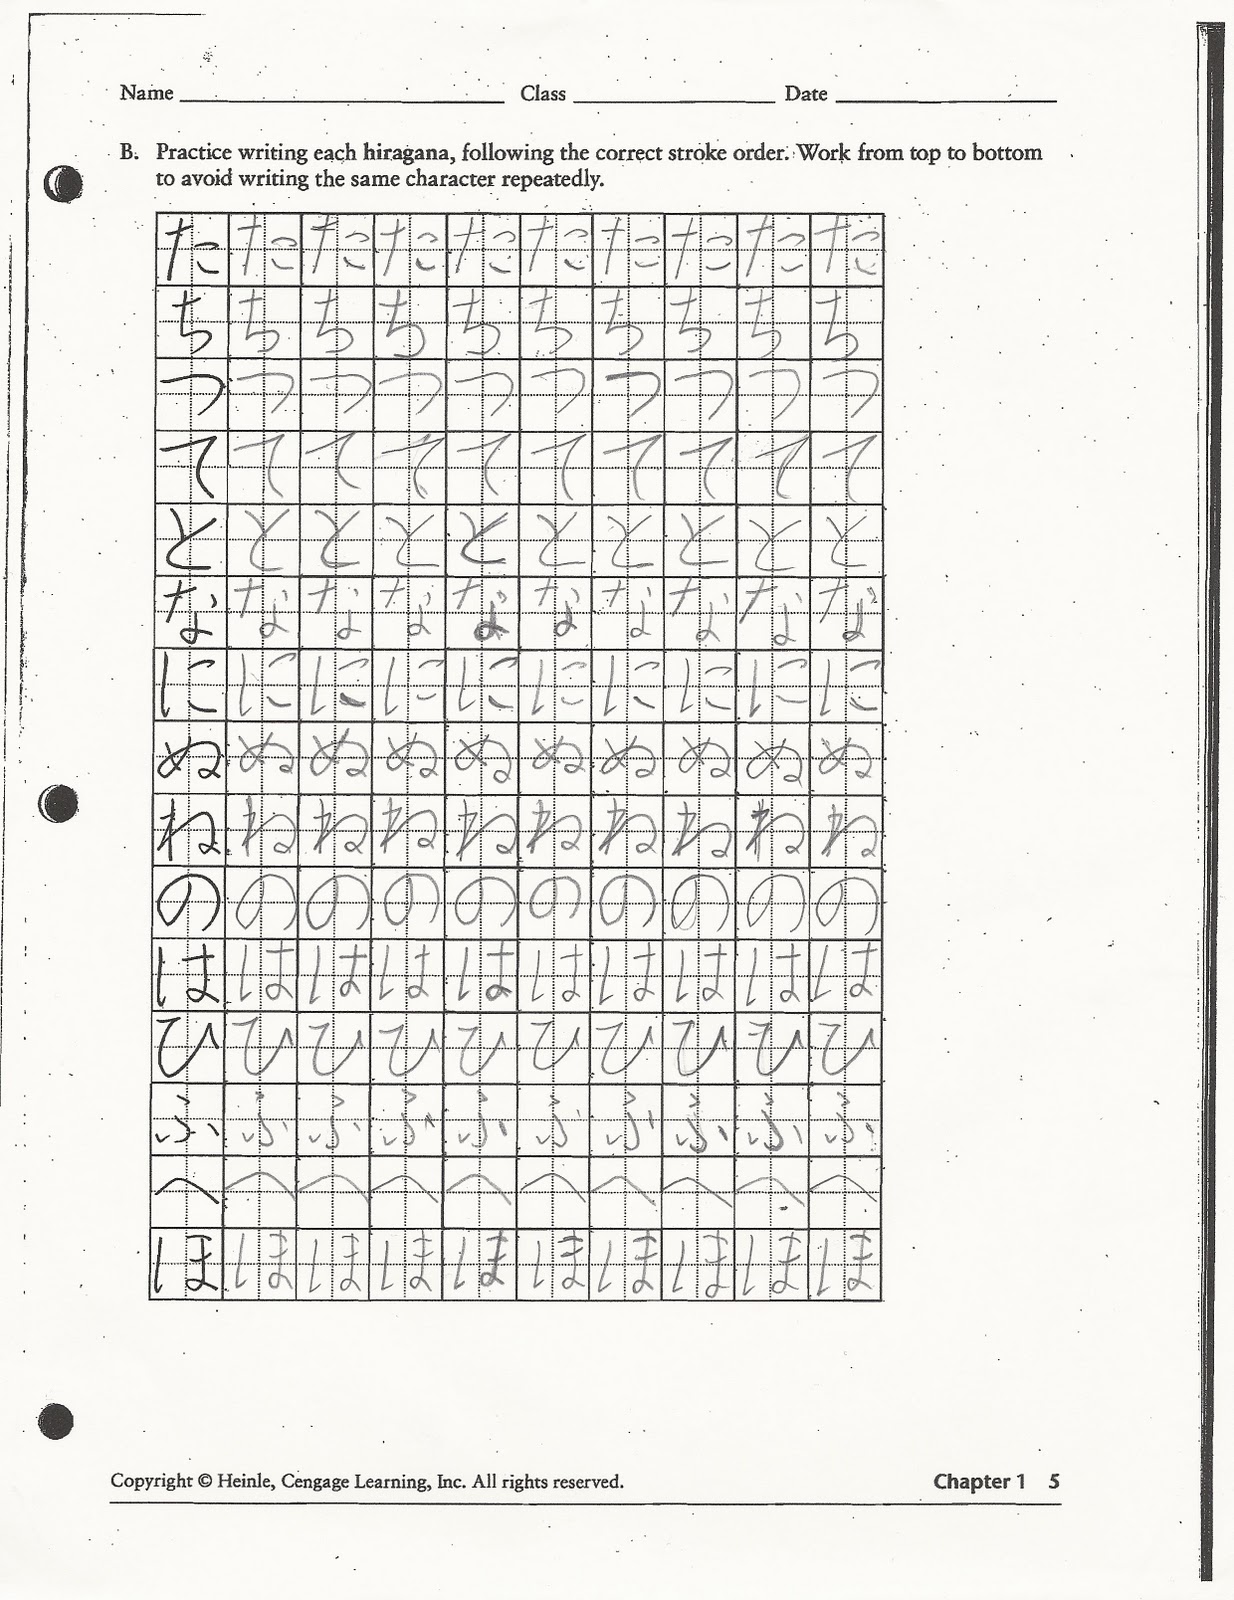 Name Class Date
B. Practice writing each hiragana, following the correct stroke order. Work from top to bottom
to avoid writing the same character repeatedly.
た た た た た た た た た た
ち ち ち ち ち ち ち ち ち ち
つ つ つ つ つ つ つ つ つ つ
て て て て て て て て て て
と と と と と と と と と と
な な な な な な な な な な
に に に に に に に に に に
ぬ ぬ ぬ ぬ ぬ ぬ ぬ ぬ ぬ ぬ
ね ね ね ね ね ね ね ね ね ね
の の の の の の の の の の
は は は は は は は は は は
ひ ひ ひ ひ ひ ひ ひ ひ ひ ひ
ふ ふ ふ ふ ふ ふ ふ ふ ふ ふ
へ へ へ へ へ へ へ へ へ へ
ほ ほ ほ ほ ほ ほ ほ ほ ほ ほ
Copyright © Heinle, Cengage Learning, Inc. All rights reserved. Chapter 1 5